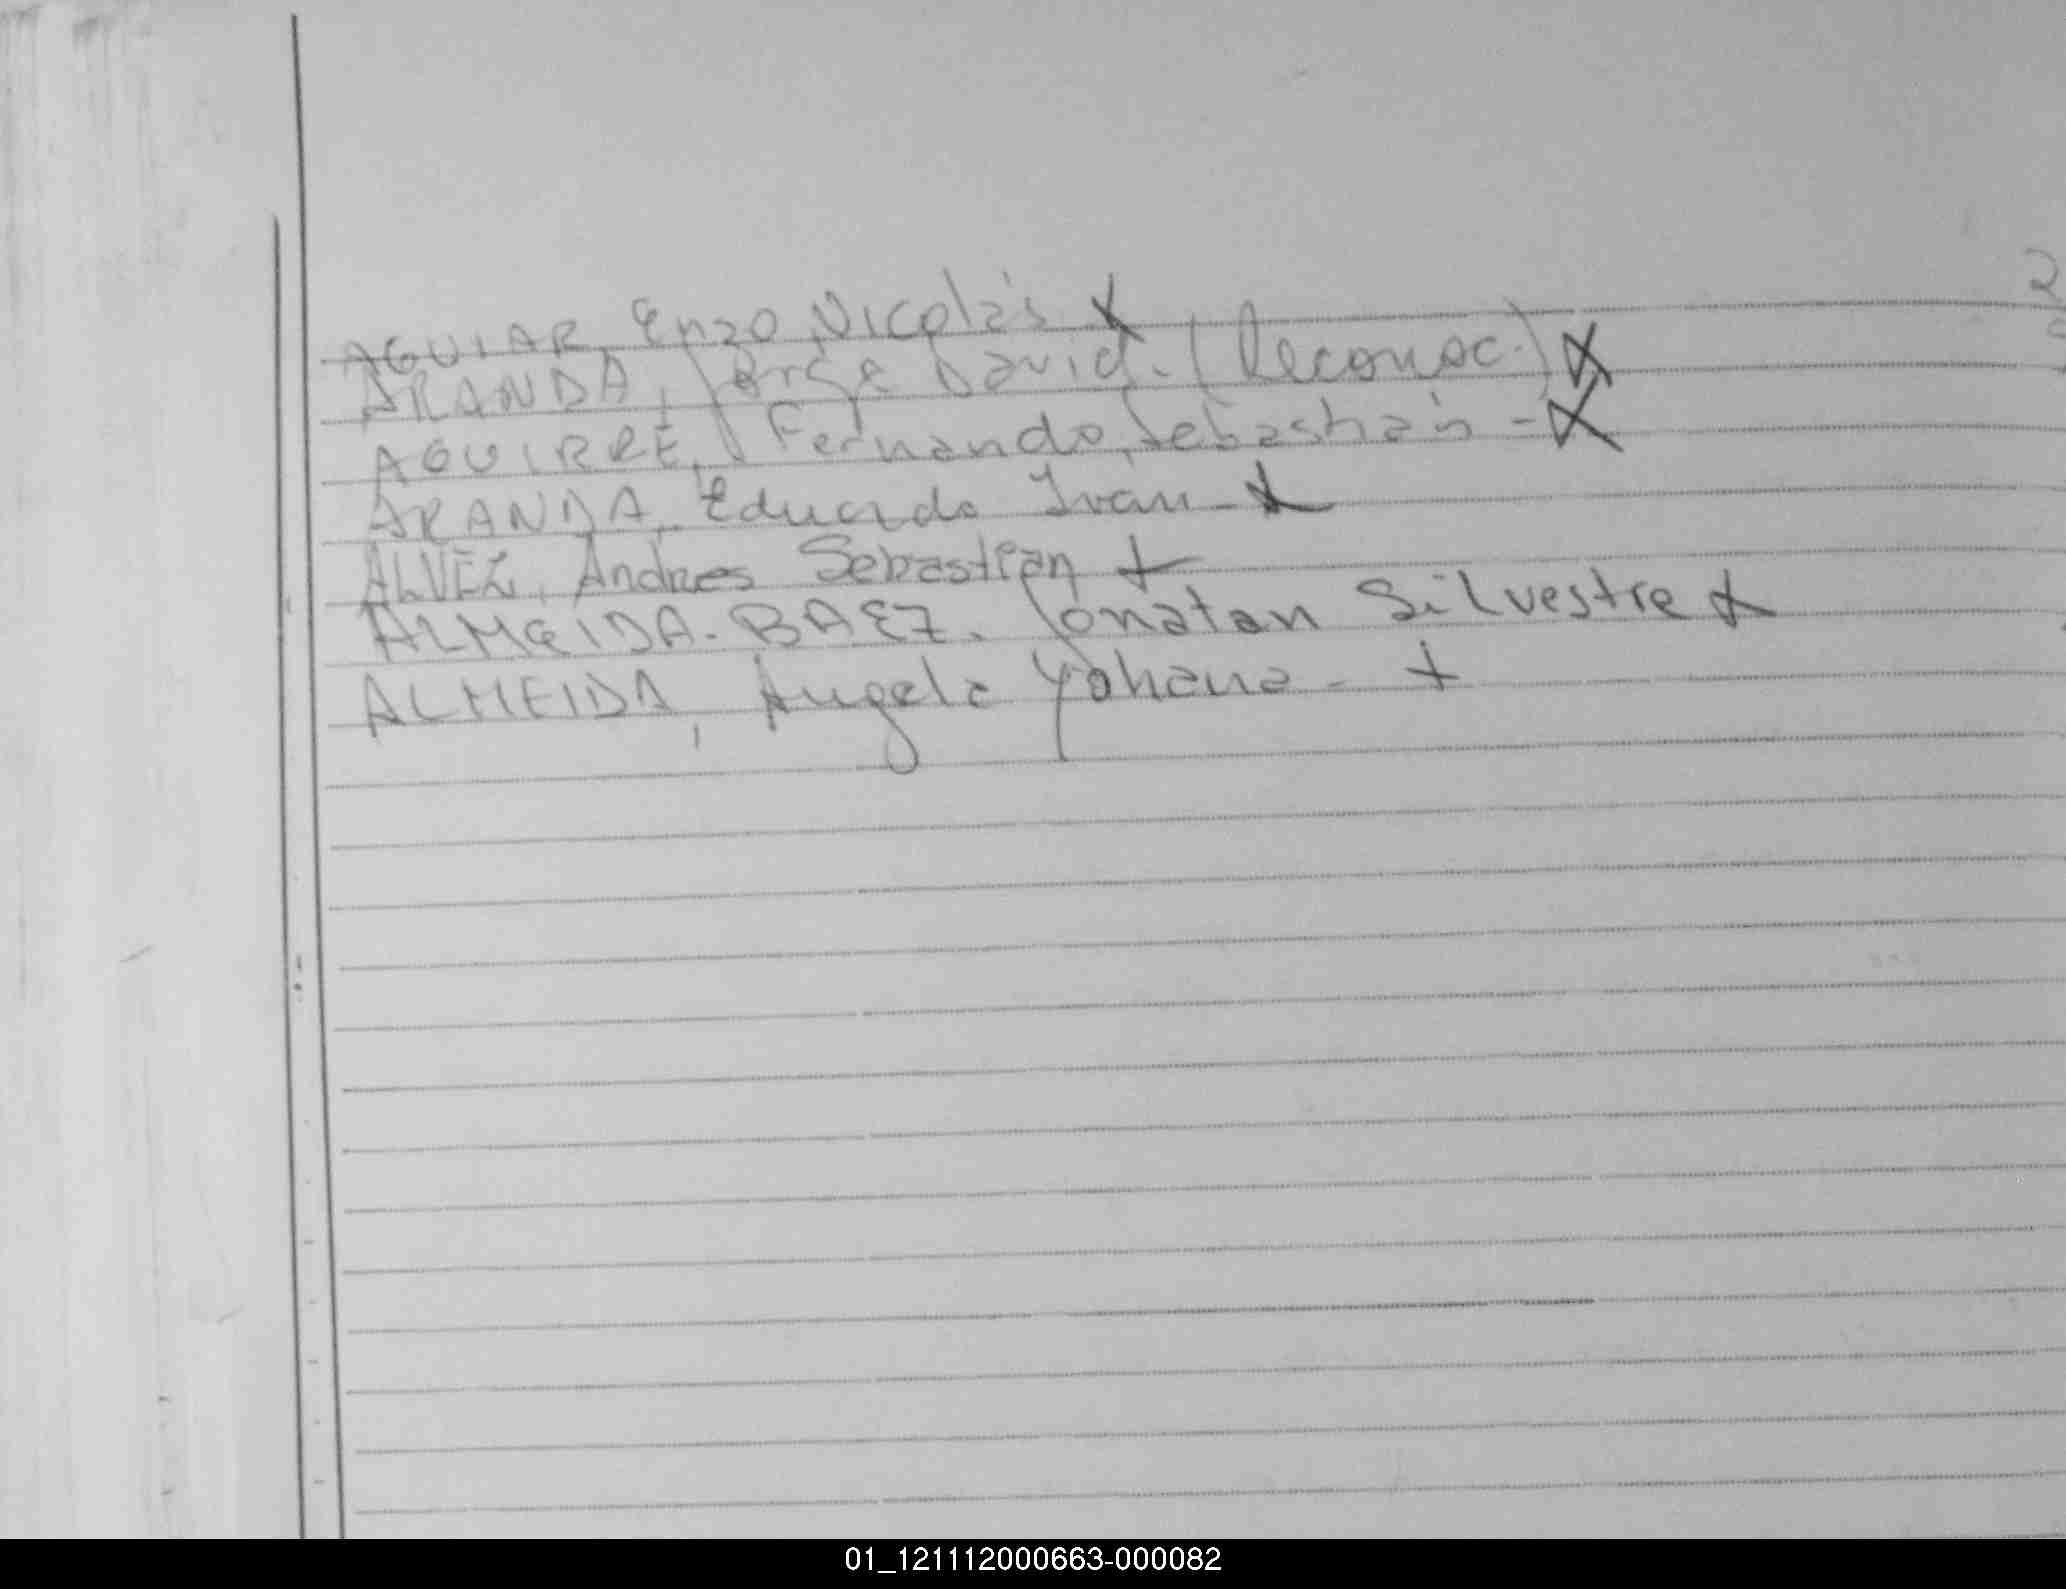 AGUIAR, Enzo Nicolás X
ARANDA, Jorge David. (Reconoc.) X
AGUIRRE, Fernando Sebastián - X
ARANDA, Eduardo Ivan - X
ALVEZ, Andres Sebastian +
ALMEIDA-BAEZ. Jonatan Silvestre X
ALMEIDA, Angela Yohana - +
2
01_121112000663-000082